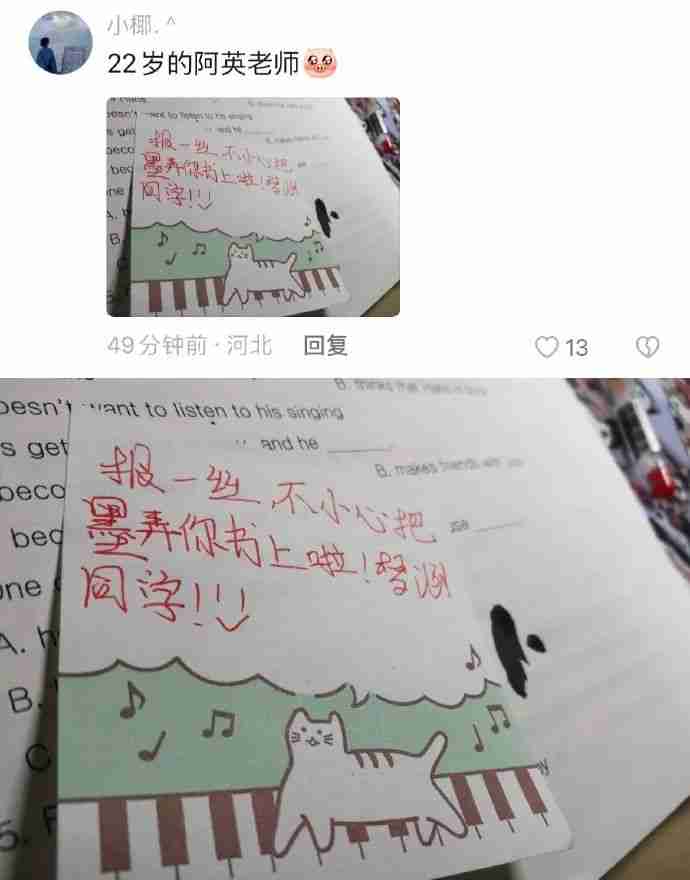 小椰.^
22岁的阿英老师
49分钟前·河北
回复
13
B. thinks that
oesn't want to listen to his singing
s get
and he
beco
B. makes friends with you
报一丝,不小心把
墨弄你书上啦!梦涵
同学!!!
bec
one
A. h
B.
C
5. F